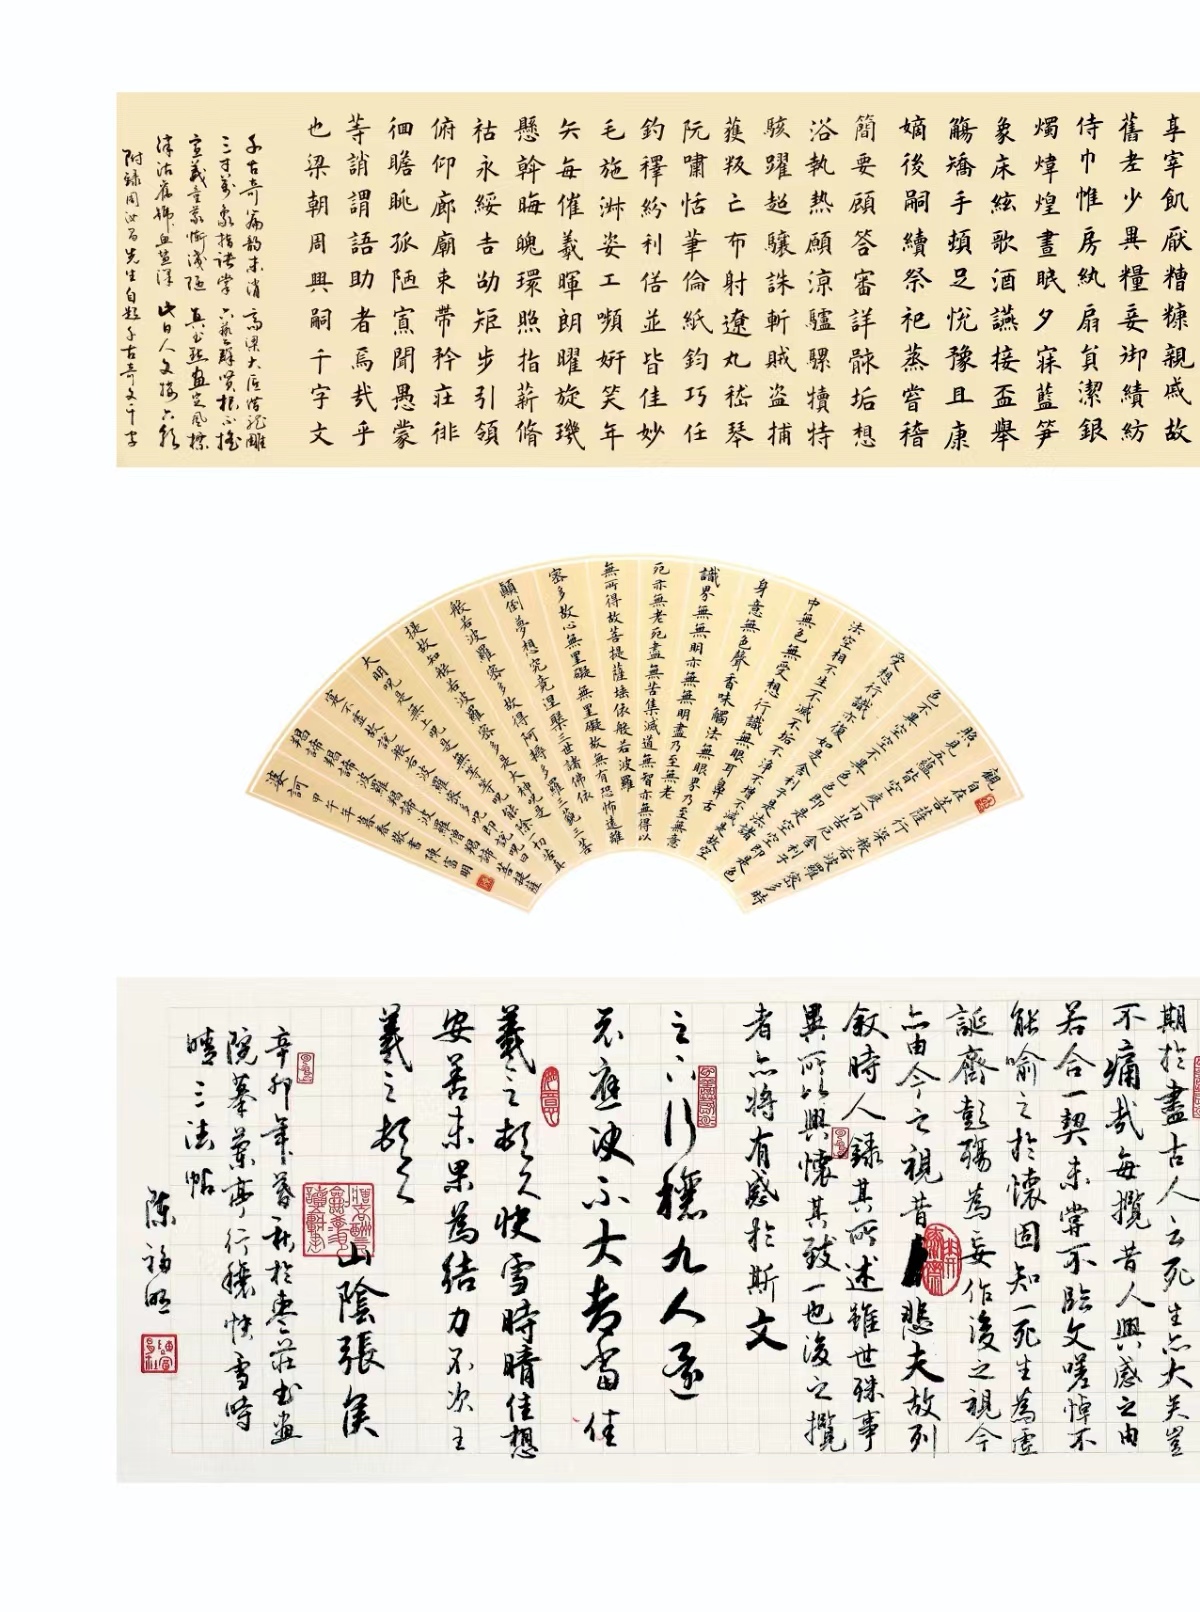 享宰飢厭糟糠親戚故
舊老少異糧妾御績紡
侍巾惟房紈扇員潔銀
燭煒煌晝眠夕寐藍笋
象床絃歌酒讌接盃舉
觴矯手頓足悅豫且康
嫡後嗣續祭祀蒸嘗稽
簡要顧答審詳骸垢想
浴執熱願涼驢騾犢特
駭躍超驤誅斬賊盜捕
獲叛亡布射遼丸嵇琴
阮嘯恬筆倫紙鈞巧任
釣釋紛利俗並皆佳妙
毛施淑姿工嚬妍笑年
矢每催羲暉朗曜旋璣
懸斡晦魄環照指薪脩
祜永綏吉劭矩步引領
俯仰廊廟束帶矜莊徘
徊瞻眺孤陋寡聞愚蒙
等誚謂語助者焉哉乎
也梁朝周興嗣千字文
附錄周汝昌先生自題千古奇文千字
觀自在菩薩行深般若波羅蜜多時
照見五蘊皆空度一切苦厄舍利子
色不異空空不異色色即是空空即是色
受想行識亦復如是舍利子是諸
法空相不生不滅不垢不淨不增不減是故空
中無色無受想行識無眼耳鼻舌
身意無色聲香味觸法無眼界乃至無意
識界無無明亦無無明盡乃至無老
死亦無老死盡無苦集滅道無智亦無得以
無所得故菩提薩埵依般若波羅
蜜多故心無罣礙無罣礙故無有恐怖遠離
顛倒夢想究竟涅槃三世諸佛依
般若波羅蜜多故得阿耨多羅三藐三菩
提故知般若波羅蜜多是大神咒是
大明咒是無上咒是無等等咒能除一切苦真
實不虛故說般若波羅蜜多咒即說咒曰
揭諦揭諦波羅揭諦波羅僧揭諦菩提薩
婆訶甲午年暮春敬書陳富明
期於盡古人云死生亦大矣豈
不痛哉每攬昔人興感之由
若合一契未嘗不臨文嗟悼不
能喻之於懷固知一死生為虛
誕齊彭殤為妄作後之視今
亦由今之視昔悲夫故列
敘時人錄其所述雖世殊事
異所以興懷其致一也後之攬
者亦將有感於斯文
羲之頓首快雪時晴佳想
安善未果為結力不次王
羲之頓首
山陰張侯